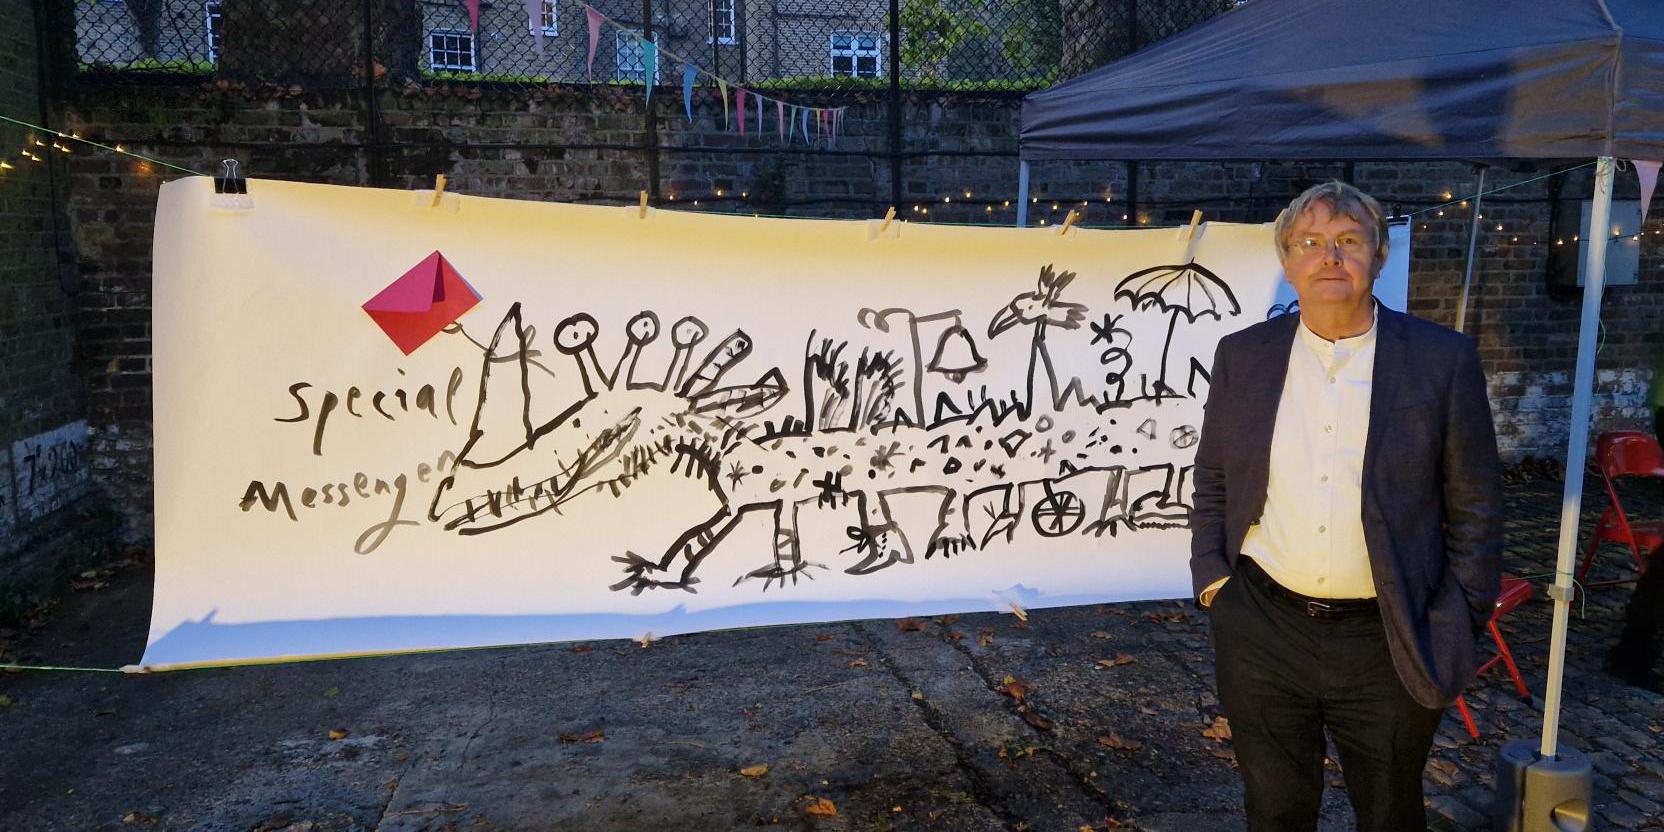 special
Messenger